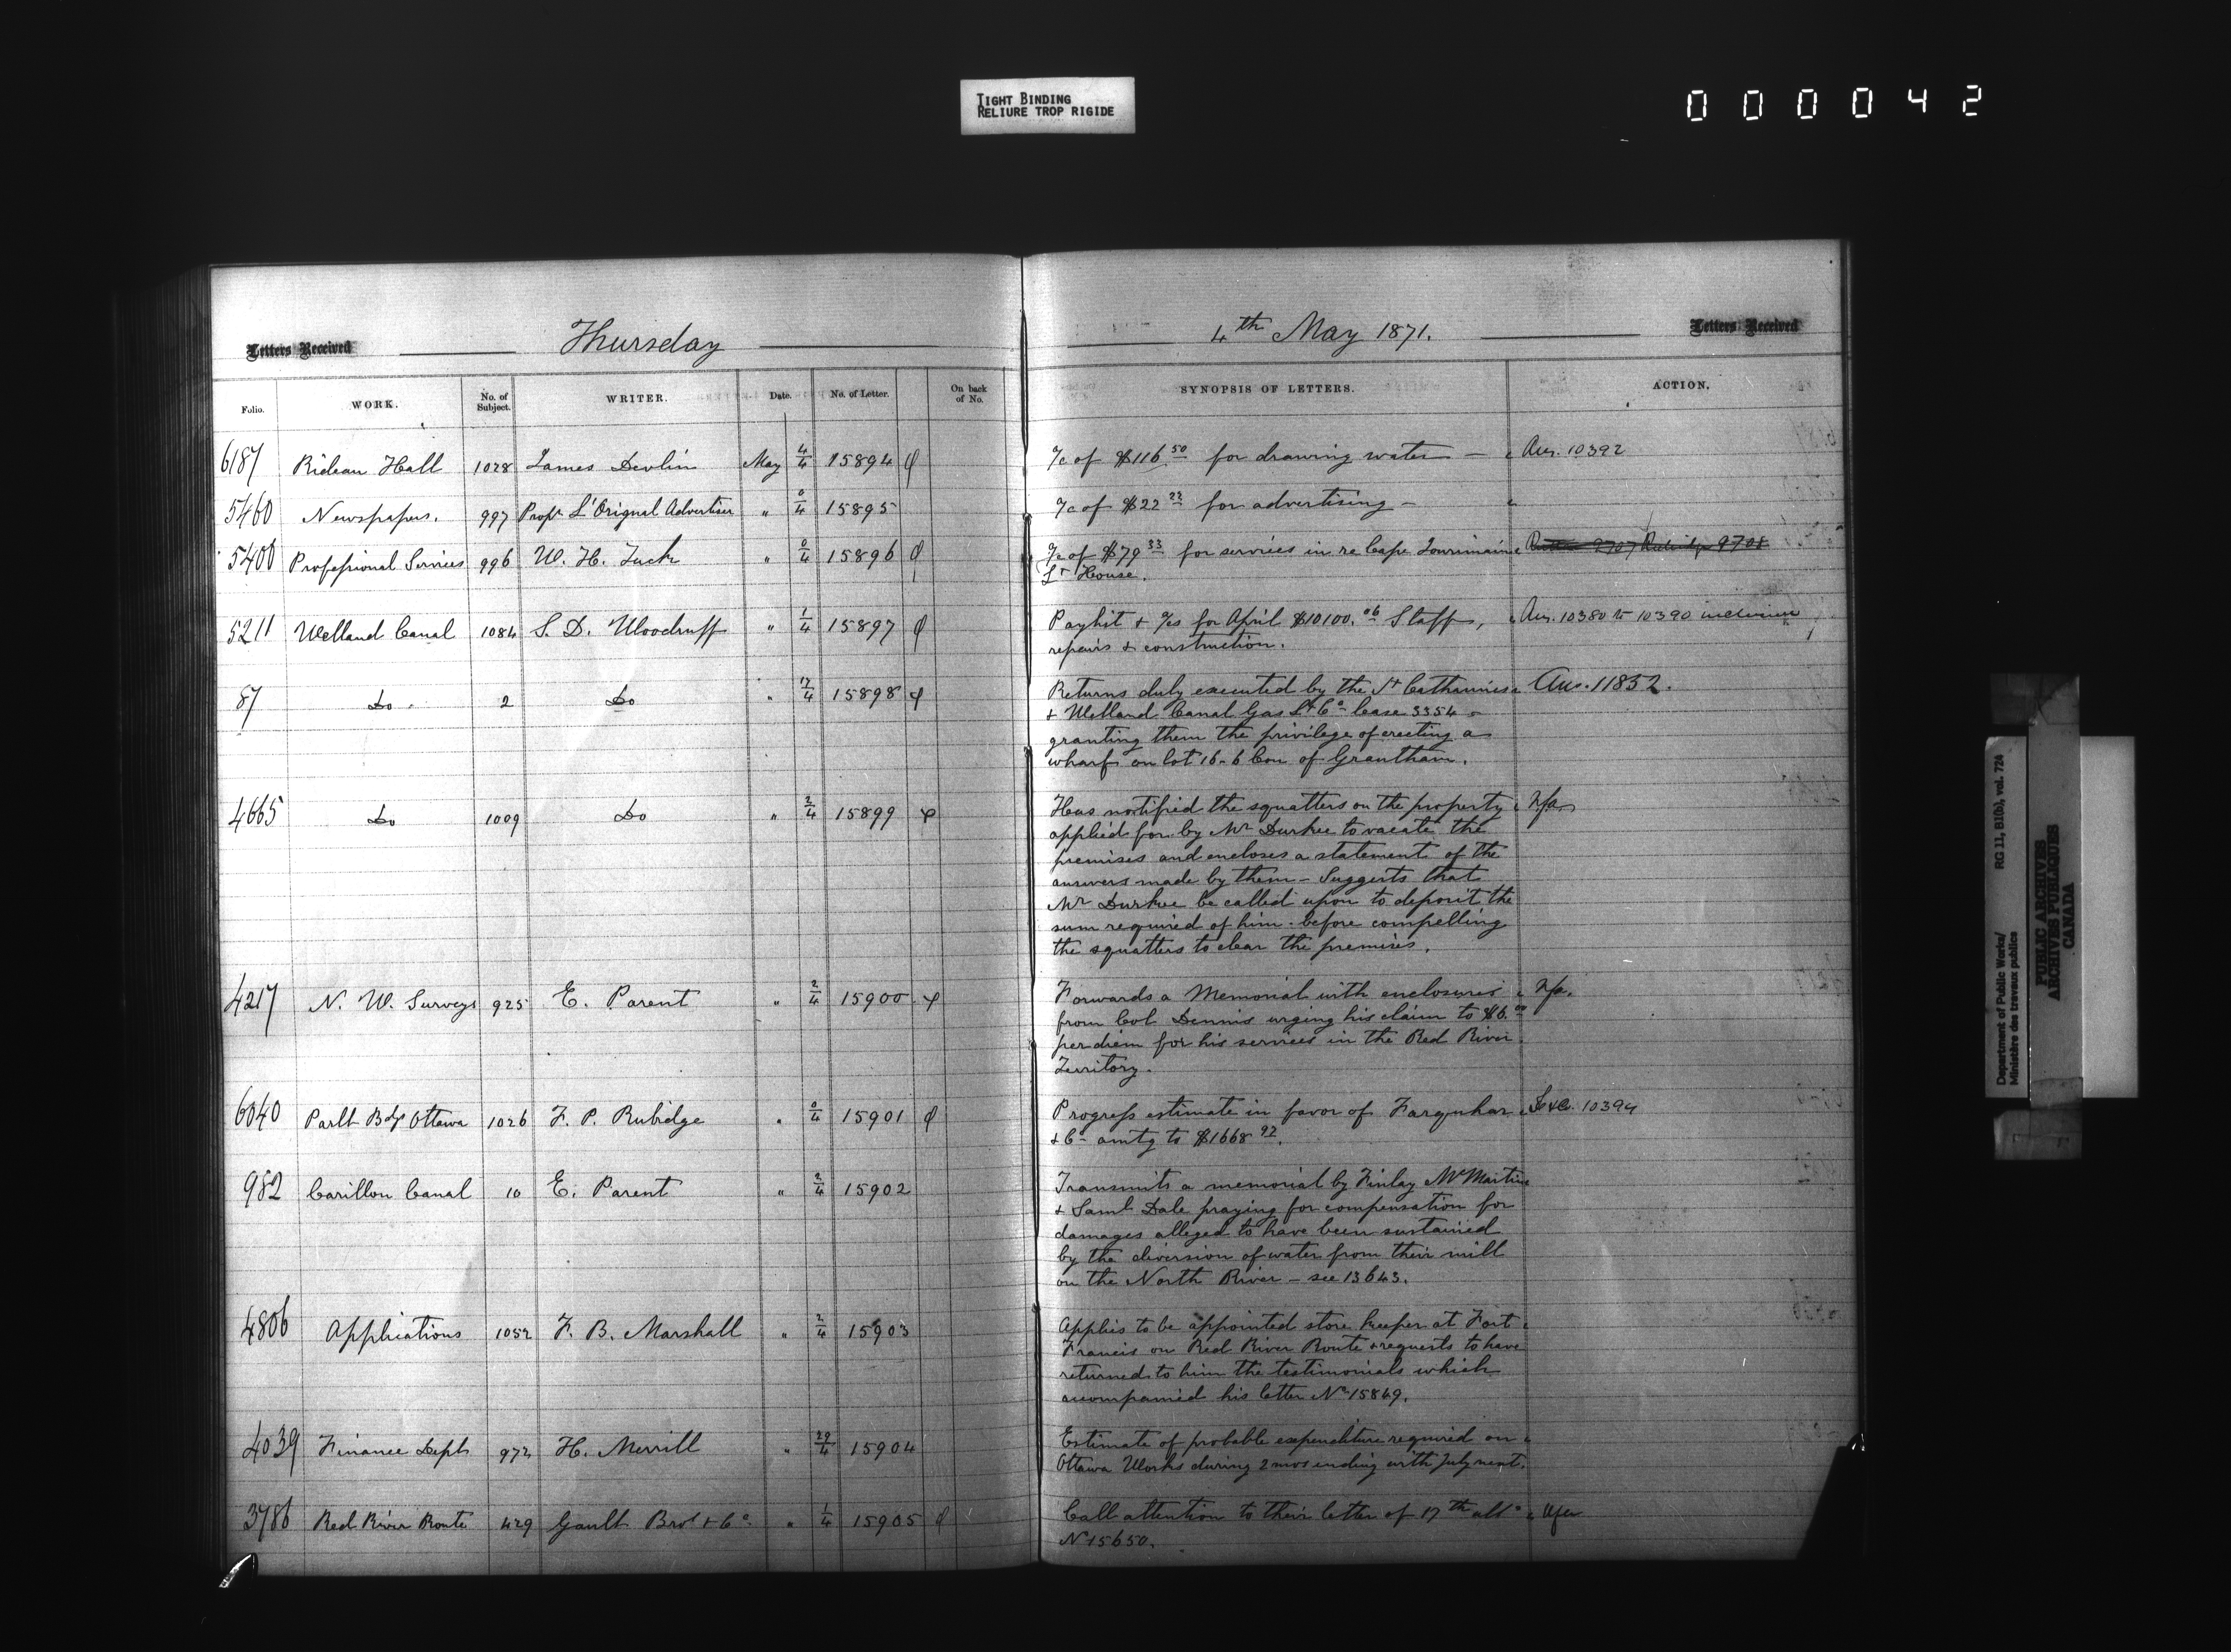 TIGHT BINDING
RELIURE TROP RIGIDE
000042
Letters Received
Thursday
4th May 1871.
Letters Received
Folio.
WORK.
No. of Subject.
WRITER.
Date.
No. of Letter.
On back of No.
SYNOPSIS OF LETTERS.
ACTION.
6187 Rideau Hall 1028 James Devlin May 4/4 15894
a/c of $116.50 for drawing water — Ans. 10392
5460 Newspapers. 997 Propr L'Orignal Advertiser " 0/4 15895
a/c of $22.22 for advertising —
5400 Professional Services 996 W. H. Tuck " 0/4 15896
a/c of $79.33 for services in re Cape Tourmaine
Lt House.
5211 Welland Canal 1084 S. D. Woodruff " 1/4 15897
Paylist & a/cs for April $10100.06 Staff, Ans. 10380 to 10390 inclusive
repairs & construction.
87 Do 2 Do " 12/4 15898
Returns duly executed by the St Catharines Ans. 11852.
& Welland Canal Gas Lt Co lease 3354 -
granting them the privilege of erecting a
wharf on lot 16-6 Con of Grantham.
4665 Do 1009 Do " 2/4 15899
Has notified the squatters on the property N/a.
applied for by Mr Durkee to vacate the
premises and encloses a statement of the
answers made by them - Suggests that
Mr Durkee be called upon to deposit the
sum required of him before compelling
the squatters to clear the premises.
4217 N. W. Surveys 925 E. Parent " 2/4 15900
Forwards a Memorial with enclosures N/a.
from Col Dennis urging his claim to $6.00
per diem for his services in the Red River
Territory.
6040 Parlt Bdgs Ottawa 1026 F. P. Rubidge " 0/4 15901
Progress estimate in favor of Farquhar 10394
& Co amtg to $1668.92.
982 Carillon Canal 10 E. Parent " 2/4 15902
Transmits a memorial by Finlay McMartin
& Saml Dale praying for compensation for
damages alleged to have been sustained
by the diversion of water from their mill
on the North River - see 13643.
4806 Applications 1052 F. B. Marshall " 2/4 15903
Applies to be appointed store keeper at Fort
Francis on Red River Route & requests to have
returned to him the testimonials which
accompanied his letter No 15849.
4039 Finance Dept 972 H. Merrill " 29/4 15904
Estimate of probable expenditure required on
Ottawa Works during 2 mos ending with July next.
3786 Red River Route 429 Gault Bros & Co " 1/4 15905
Call attention to their letter of 17th ulto
No 15650.
Department of Public Works/ RG 11, B1(b), vol. 724
Ministère des travaux publics
PUBLIC ARCHIVES
ARCHIVES PUBLIQUES
CANADA